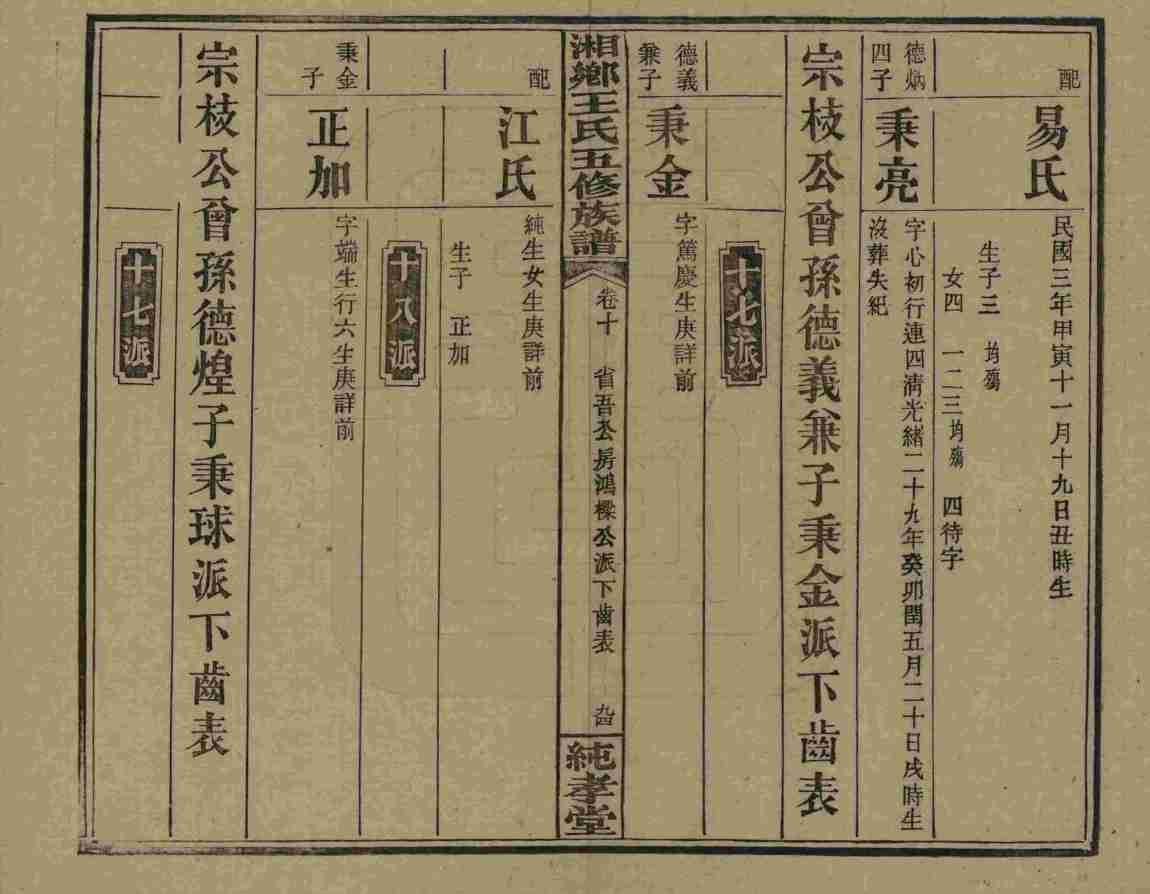 配
易氏
民國三年甲寅十一月十九日丑時生
生子三 均殤
女四 一二三均殤 四待字
德炳
四子
秉亮
字心初行連四清光緒二十九年癸卯閏五月二十日戌時生
沒葬失紀
宗枝公曾孫德義兼子秉金派下齒表
十七派
德義
兼子
秉金
字篤慶生庚詳前
湘鄉王氏五修族譜
卷十
省吾公房鴻樑公派下齒表
純孝堂
配
江氏
純生女生庚詳前
生子 正加
十八派
秉金
子
正加
字端生行六生庚詳前
宗枝公曾孫德煌子秉球派下齒表
十七派